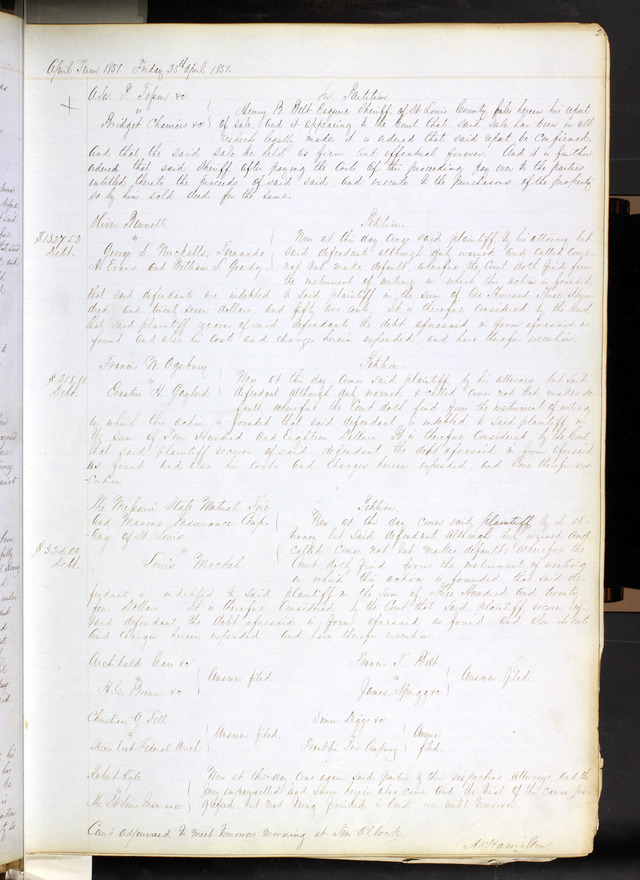 April Term 1851. Friday 25th April 1851.
In Partition
vs Henry B. Belt Esquire Sheriff of St Louis County files herein his report
Bridget Chenier &c of sale, and it appearing to the Court that said sale has been in all
respects legally made, it is ordered that said report be confirmed,
And that the said sale be held as firm and effectual forever. And it is further
ordered that said Sheriff after paying the Costs of this proceeding pay over to the parties
entitled thereto the proceeds of said sale, and execute to the purchasers of the property
so by him sold deed for the same.
Oliver Bennett Petition.
$1327.52 vs Now at this day comes said plaintiff by his attorney but
Debt. George S. Fernando said defendants although duly warned and called Come
H. Evans, and William S. not but make default, wherefore the Court doth find from
the instrument of writing on which this action is founded,
that said defendants are indebted to said plaintiff in the sum of One thousand Three Hun-
dred and twenty seven dollars, and fifty two cents. It is therefore Considered by the Court
that said plaintiff recover of said defendants the debt aforesaid in form aforesaid as
found and also his costs and charges herein expended, and have therefor execution.
Francis W. Petition.
vs Now at this day Comes said plaintiff by his attorney but said
Debt. Erastus H. Gaylord defendant although duly warned & called comes not but makes de-
fault, wherefore the Court doth find from the instrument of writing
on which this action is founded that said defendant is indebted to said plaintiff in
the sum of Hundred and Eighteen Dollars It is therefore Considered by the Court,
that said plaintiff recover of said defendant the debt aforesaid in form aforesaid
as found and also his costs and charges herein expended, and have therefor exe-
cution.
The Missouri State Mutual Fire Petition.
and Marine Insurance Com- Now at this day comes said plaintiff by its at-
pany of St Louis torney but said defendant although duly warned and
$324.00 vs called comes not but makes default: wherefore the
Debt. Louis Court doth find from the instrument of writing
on which this action is founded, that said de-
fendant is indebted to said plaintiff in the sum of Three Hundred and twenty
four Dollars It is therefore considered by the Court that said plaintiff recover of
said defendant the debt aforesaid in form aforesaid as found and also its costs
and charges herein expended and have therefor execution.
Archibald &c Francis T. Belt
vs Answer filed. vs Answer filed.
H. C. &c James Spragg &c
Christian G. &c
vs Answer filed. vs Answer
Franklin Ins Company filed.
Robert Kyle Now at this day come again said parties by their respective Attorneys, and the
vs jury empannelled and sworn herein also come, and the trial of the cause pro-
The St Louis Insurance gressed, but not being finished is laid over until tomorrow.
Court adjourned to meet tomorrow morning at Ten O'Clock.
A. Hamilton